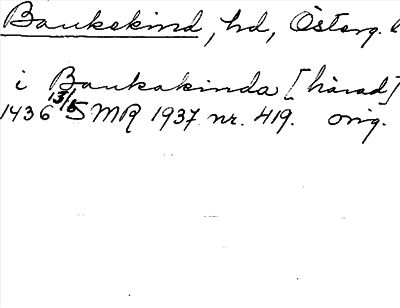 Bankekind, hd, Österg.
i Bankakinda [härad]
1436 13/5 MR 1937 nr. 419. orig.